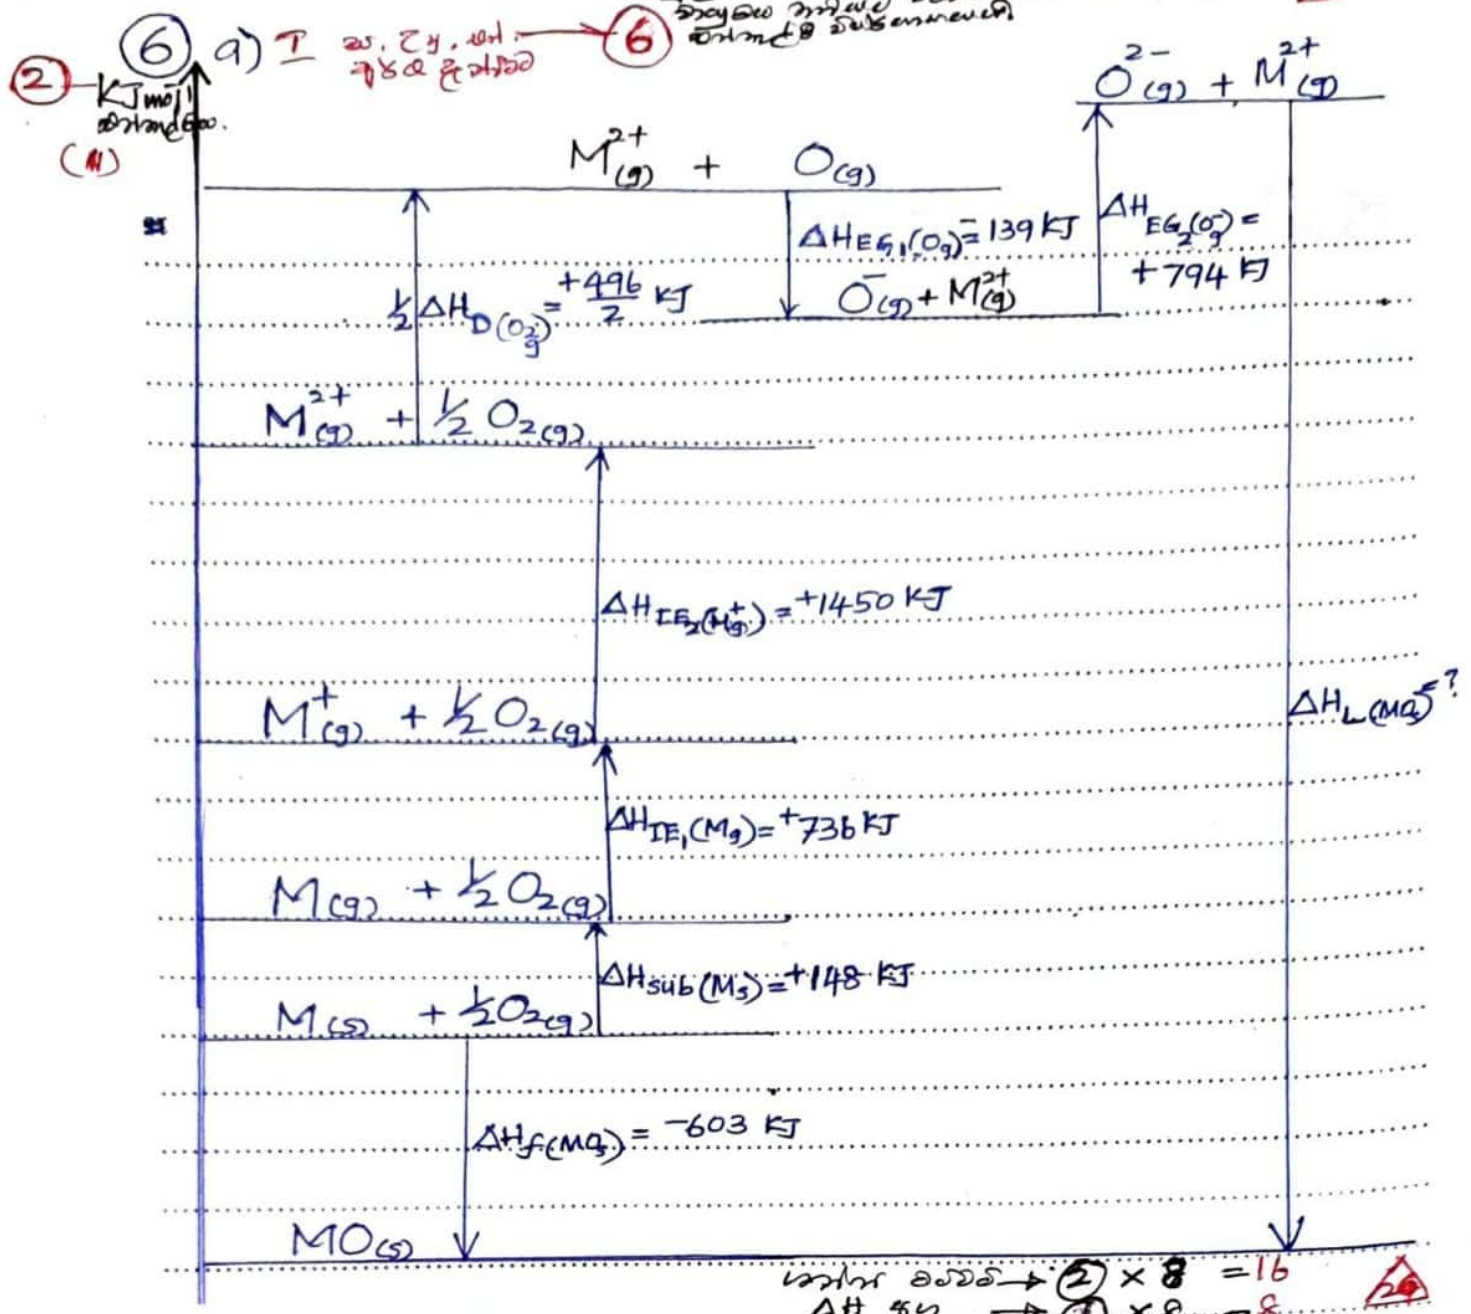 6 a) I
6
2
KJ mol⁻¹
(H)
O²⁻(g) + M²⁺(g)
M²⁺(g) + O(g)
ΔH EG₁(O g) = ⁻139 KJ
ΔH EG₂(O⁻ g) = +794 KJ
O⁻(g) + M²⁺(g)
½ ΔH D(O₂ g) = +496/2 KJ
M²⁺(g) + ½ O₂(g)
ΔH IE₂(M⁺ g) = ⁺1450 KJ
M⁺(g) + ½ O₂(g)
ΔH L(MO s) = ?
ΔH IE₁(M g) = ⁺736 KJ
M(g) + ½ O₂(g)
ΔH sub(M s) = +148 KJ
M(s) + ½ O₂(g)
ΔH f(MO s) = ⁻603 KJ
MO(s)
→ 2 × 8 = 16
ΔH